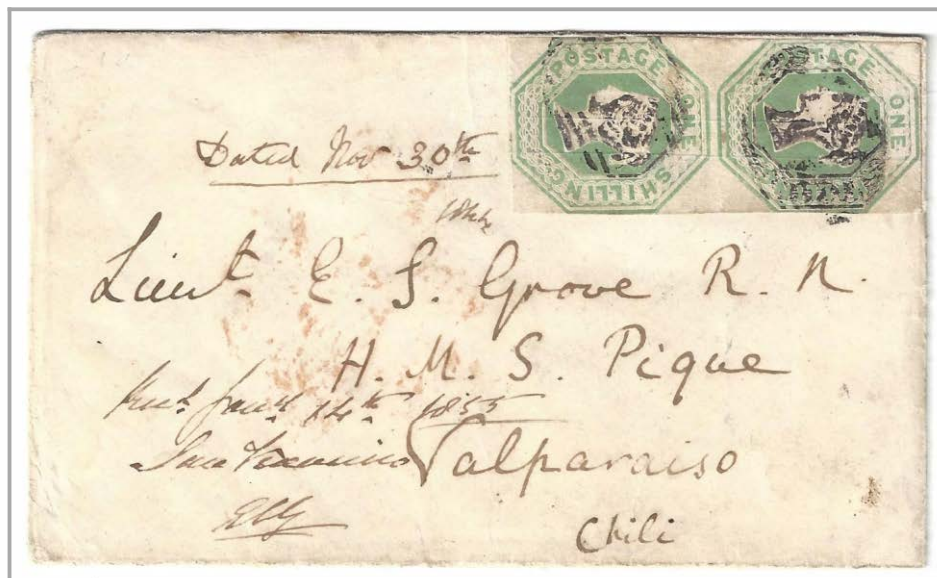 POSTAGE ONE SHILLING
POSTAGE ONE
Dated Nov 30th
Lieut. E. S. Grove R. N.
H. M. S. Pique
14th 1855
San Francisco Valparaiso
Chili